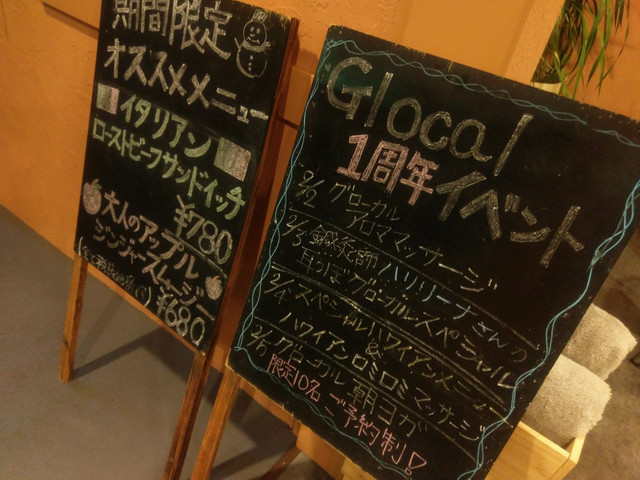 期間限定
オススメメニュー
イタリアン
ローストビーフサンドイッチ
¥780
大人のアップル
ジンジャースムージー
¥680
Glocal
1周年イベント
2/2 グローカル
アロママッサージ
2/3 鍼灸師 ハリリーナさんの
耳つぼグローカルスペシャル
2/4 スペシャルハワイアンメニュー
&
ハワイアンロミロミマッサージ
2/5 グローカル 朝ヨガ
限定10名 ご予約制!